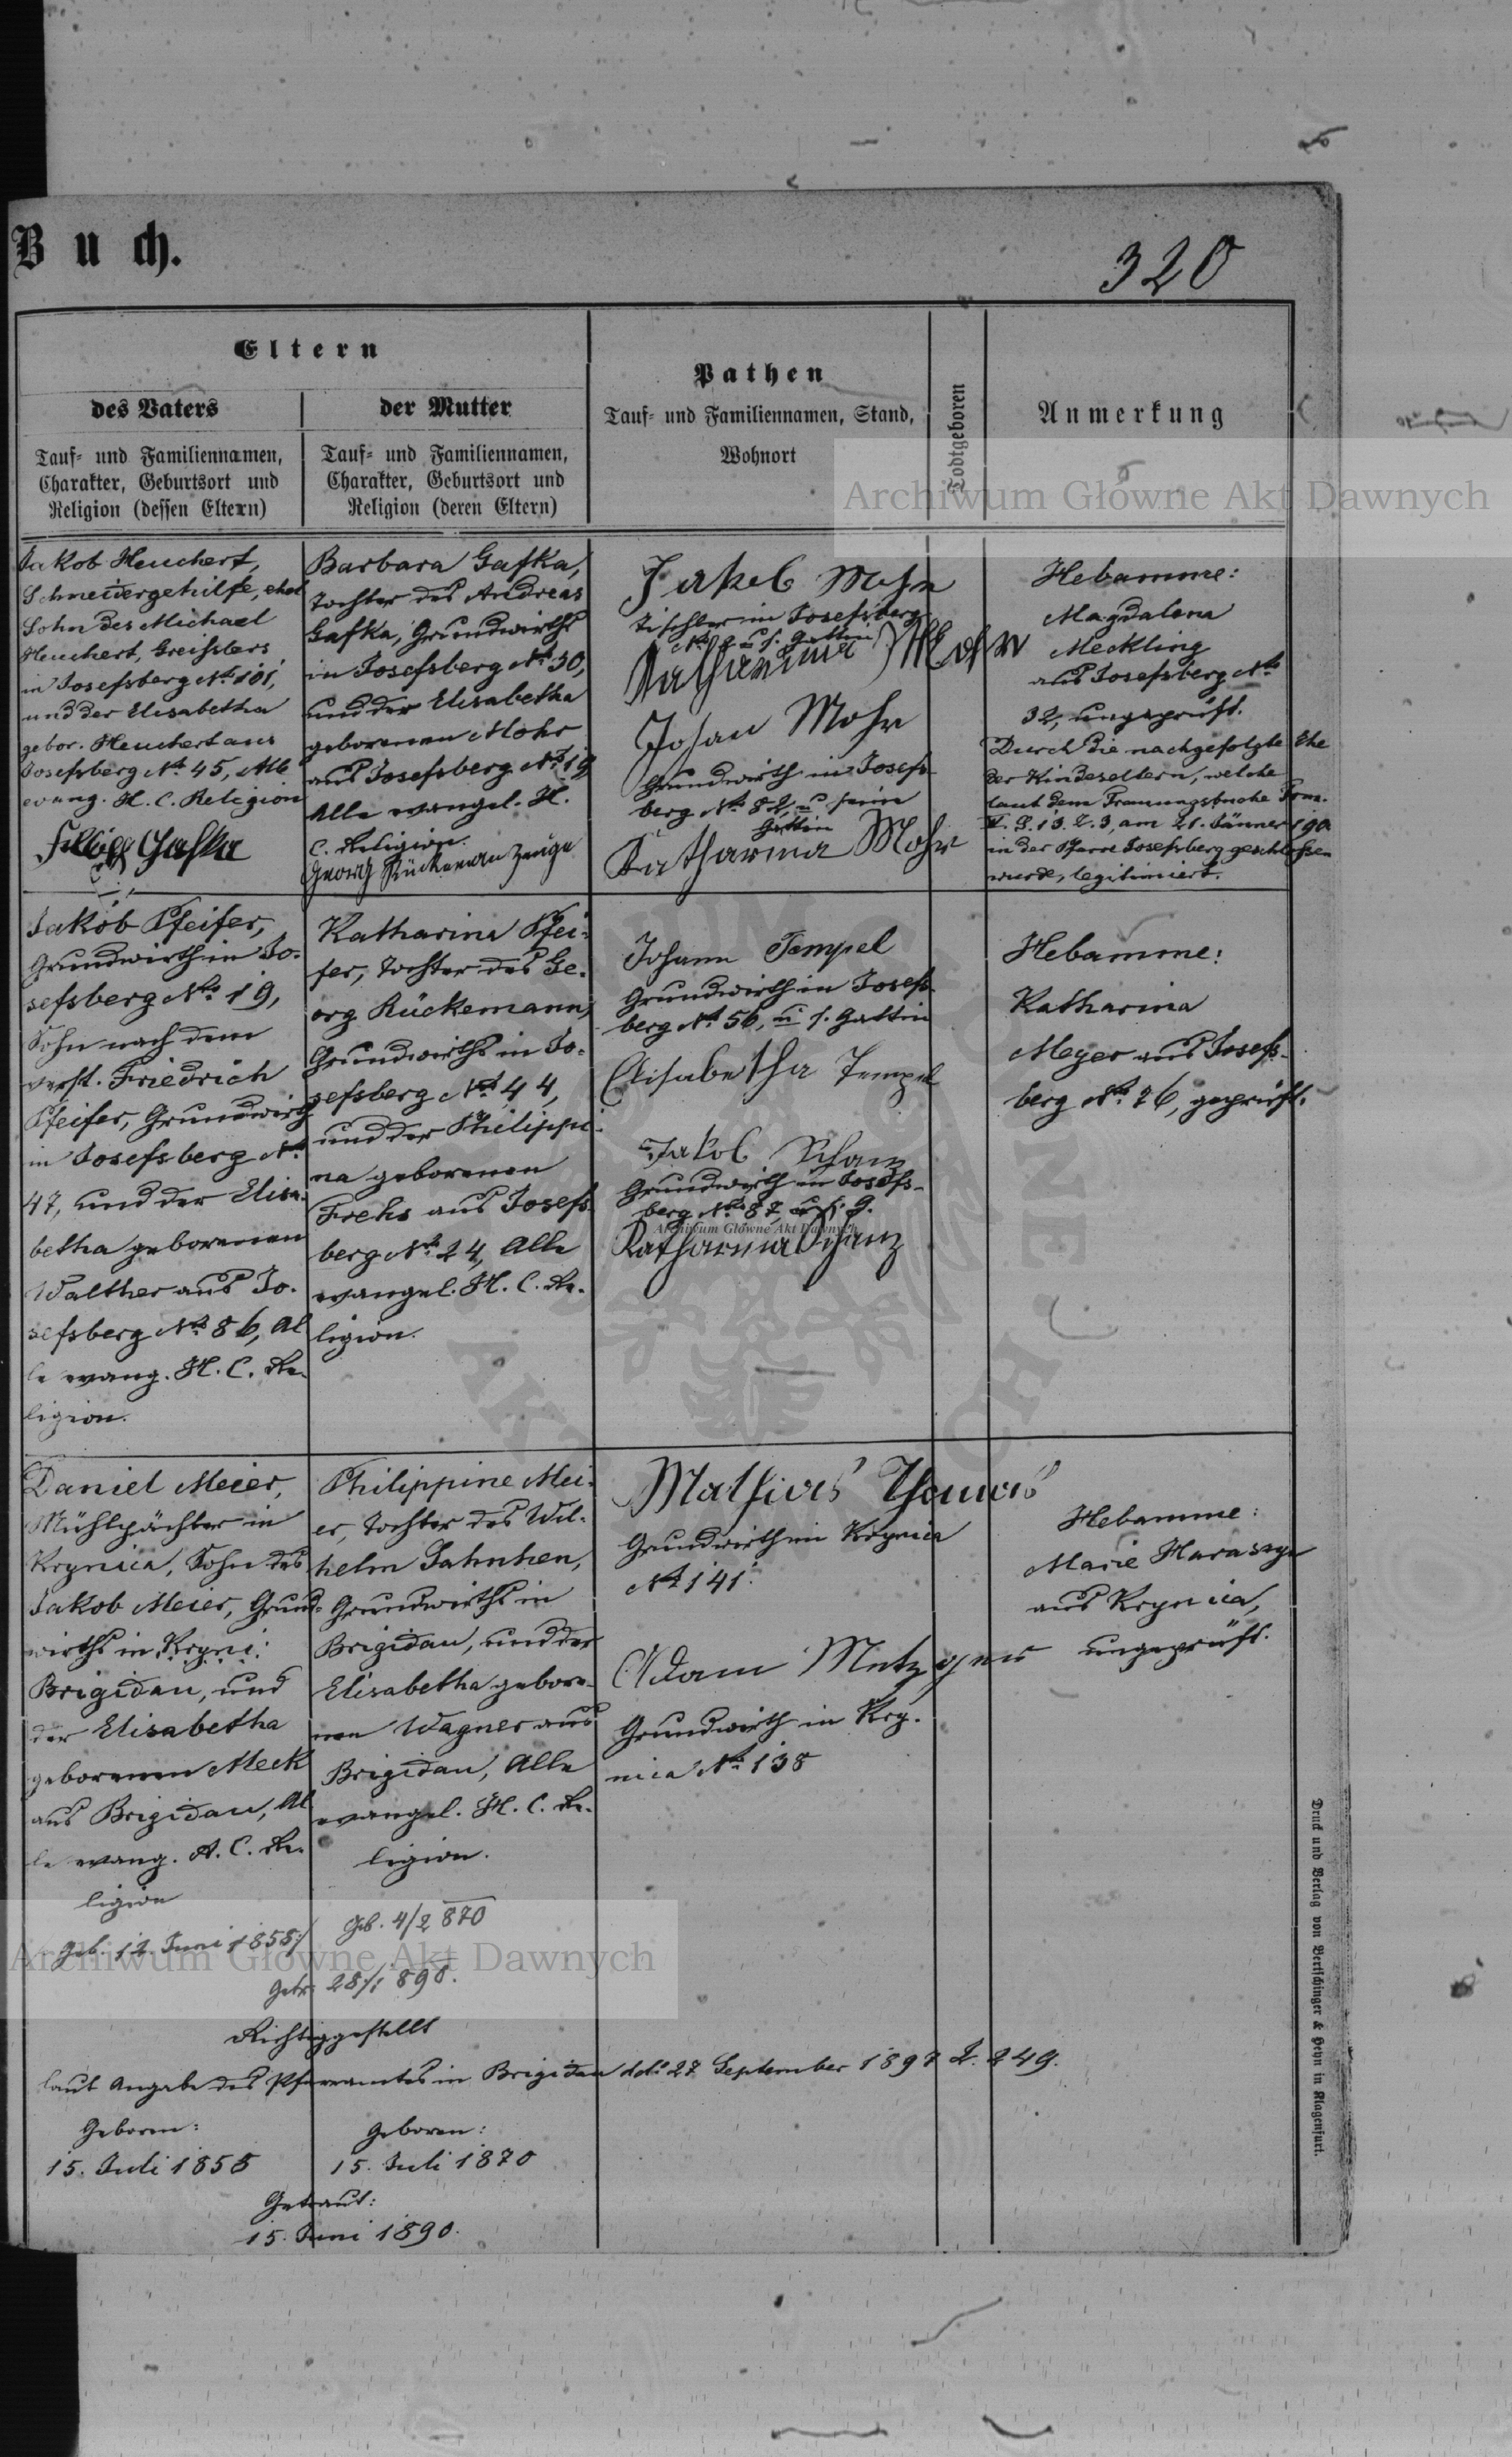 Buch.
320
Eltern
des Vaters
Tauf- und Familiennamen,
Charakter, Geburtsort und
Religion (dessen Eltern)
der Mutter
Tauf- und Familiennamen,
Charakter, Geburtsort und
Religion (deren Eltern)
Pathen
Tauf- und Familiennamen, Stand,
Wohnort
Todtgeboren
Anmerkung
Archiwum Główne Akt Dawnych
Jakob Heuchert,
Schneidergehilfe, ehel
Sohn des Michael
Heuchert, Greißlers
in Josefsberg No 101,
und der Elisabetha
gebor. Heuchert aus
Josefsberg No 45, Alle
evang. H. C. Religion
Gafka
Barbara Gafka,
Tochter des Andreas
Gafka, Grundwirths
in Josefsberg No 30,
und der Elisabetha
geborenen Mohr
aus Josefsberg No 19
Alle evangel. H.
C. Religion.
Georg Rückeman Zeuge
Jakob Mohr
Tischler in Josefsberg
No u. s. Gattin
Katharina Mohr
Johan Mohr
Grundwirth in Josefs-
berg No 82, u seine
Gattin
Katharina Mohr
Hebamme:
Magdalena
Meckling
aus Josefsberg No
32, ungeprüft.
Durch die nachgefolgte Ehe
der Kindeseltern, welche
laut dem Trauungsbuche Tom.
V. S. 13. Z. 3, am 21. Jänner 190
in der Pfarre Josefsberg geschlossen
wurde, legitimiert.
Jakob Pfeifer,
Grundwirth in Jo-
sefsberg No 19,
Sohn nach dem
verst. Friedrich
Pfeifer, Grundwirth
in Josefsberg No
47, und der Elisa-
betha geborenen
Walther aus Jo-
sefsberg No 86, Al
le evang. H. C. Re-
ligion.
Katharina Pfei-
fer, Tochter des Ge-
org Rückemann,
Grundwirths in Jo-
sefsberg No 44,
und der Philippi-
na geborenen
Frehs aus Josefs-
berg No 24, Alle
evangel. H. C. Re-
ligion.
Johann Tempel
Grundwirth in Josefs-
berg No 56, u s. Gattin
Elisabetha Tempel
Jakob Schanz
Grundwirth in Josefs-
berg No 87, u s. G.
Archiwum Główne Akt Dawnych
Katharina Schanz
Hebamme:
Katharina
Meyer aus Josefs-
berg No 26, geprüft.
Daniel Meier,
Mühlpächter in
Krynica, Sohn des
Jakob Meier, Grund-
wirths in Kryni:
Brigidau, und
der Elisabetha
geborenen Meck
aus Brigidau, Al
le evang. A. C. Re-
ligion
Philippine Mei-
er, Tochter des Wil-
helm Jahnhen,
Grundwirths in
Brigidau, und der
Elisabetha gebore-
nen Wagner aus
Brigidau, Alle
evangel. H. C. Re-
ligion.
Mathias Thomas
Grundwirth in Krynica
No 141.
Adam Metzger
Grundwirth in Kry-
nica No 138
Hebamme:
Marie Harasym
aus Krynica,
ungeprüft.
Geb. 12. Juni 1858/
Geb. 4/2 870
Archiwum Główne Akt Dawnych
Getr. 28/1 890.
Richtiggestellt
laut Angabe des Pfarramtes in Brigidau ddo 27 September 1897 Z. 249.
Geboren:
15. Juli 1858
Geboren:
15. Juli 1870
Getraut:
15. Juni 1890.
Druck und Verlag von Bertschinger & Heyn in Klagenfurt.